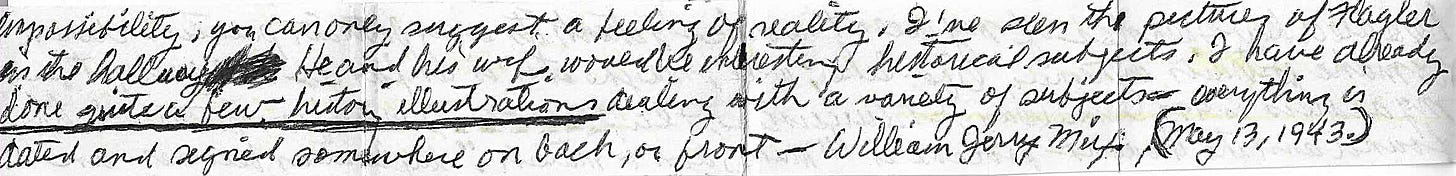 impossibility, you can only suggest a feeling of reality. I've seen the pictures of Flagler
in the hallway He and his wife would be interesting historical subjects. I have already
done quite a few history illustrations dealing with a variety of subjects - everything is
dated and signed somewhere on back, or front - William Jerry (May 13, 1943.)